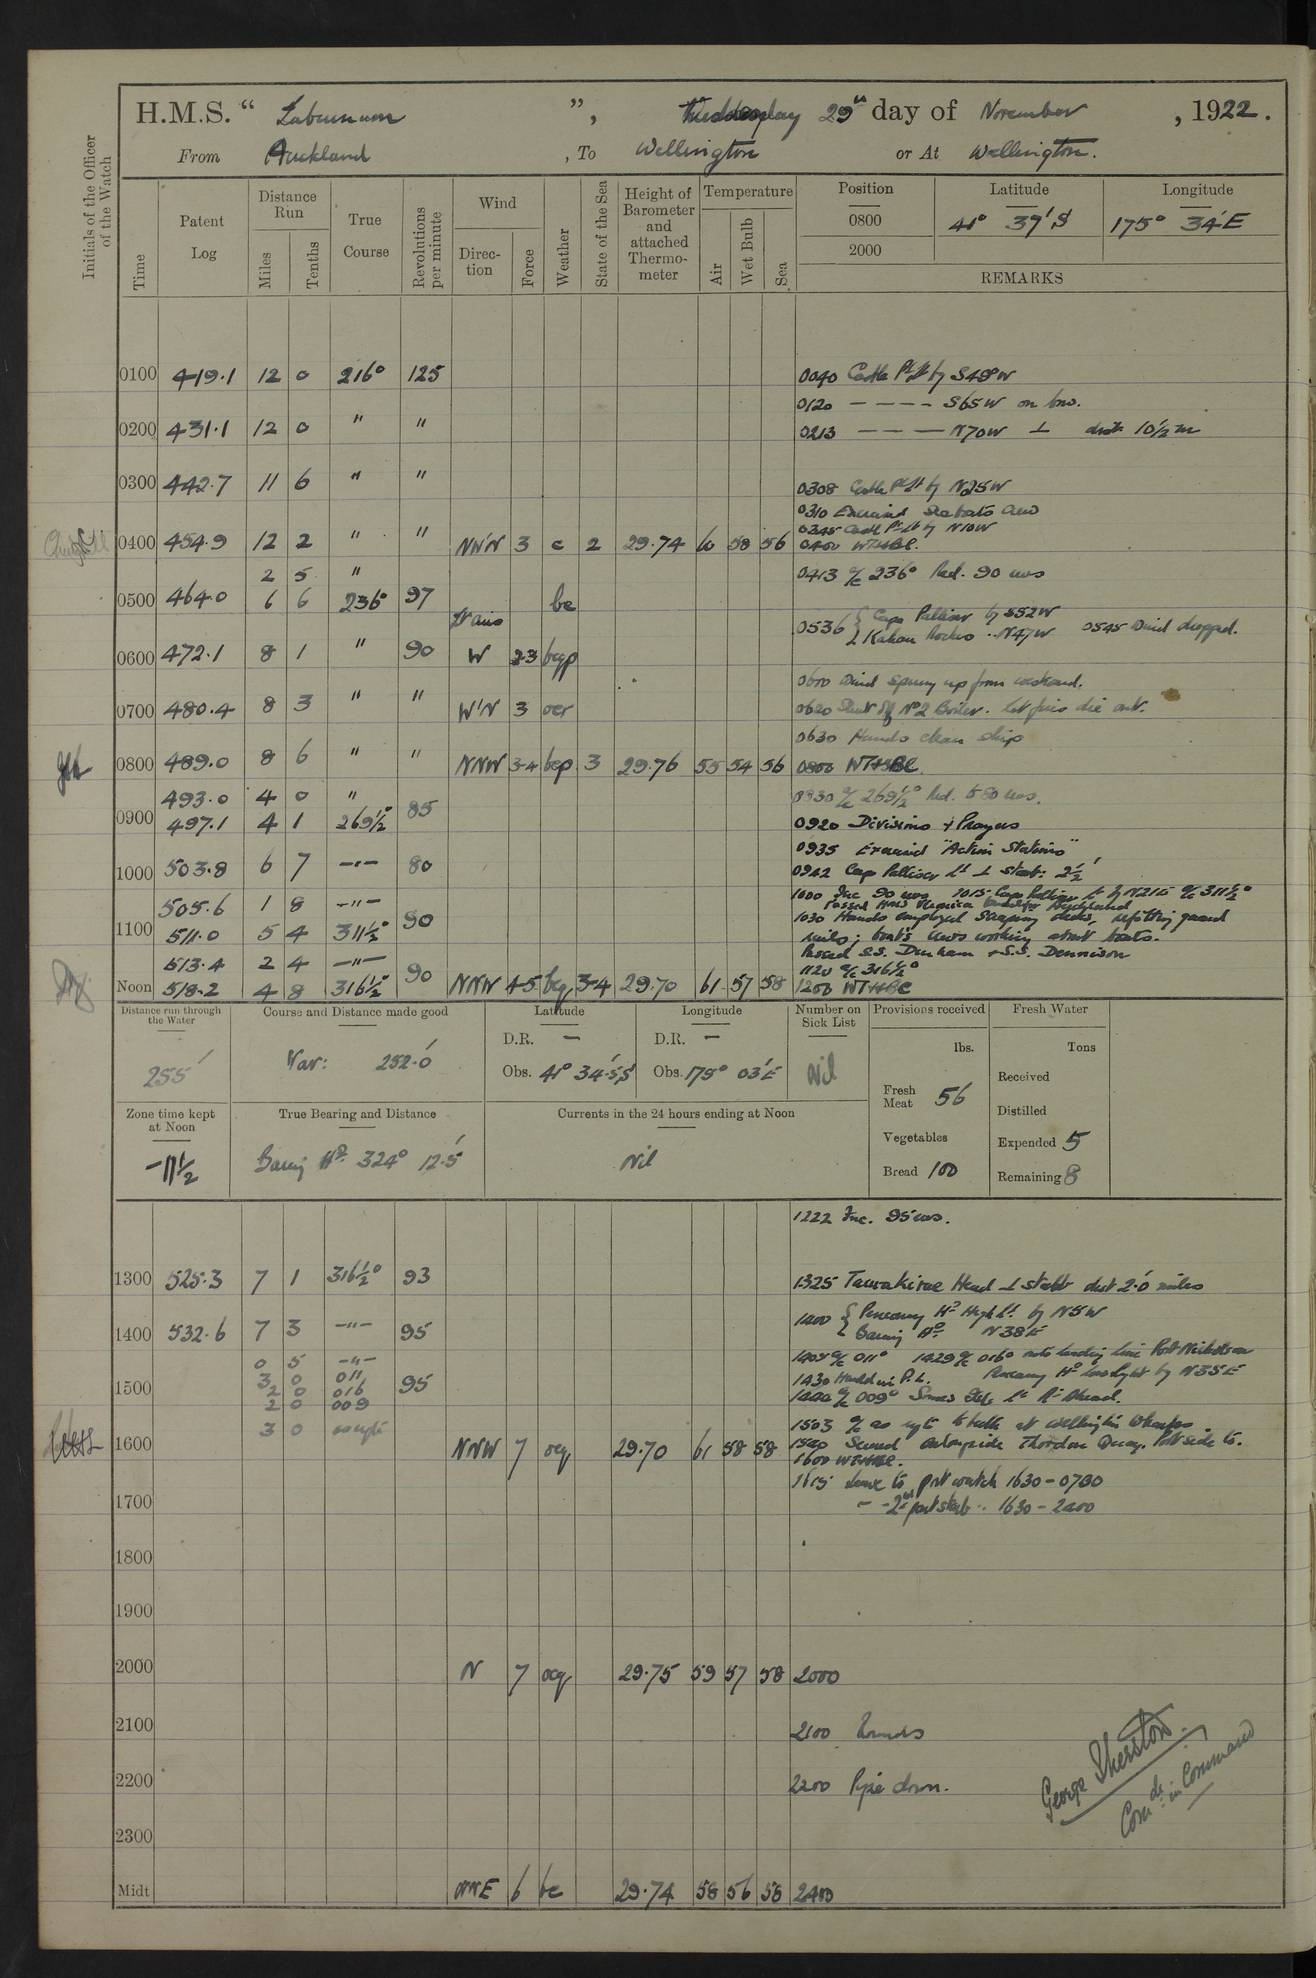 H.M.S. “ Laburnum ”, Wednesday 29th day of November, 1922.
From Auckland, To Wellington or At Wellington.
Initials of the Officer of the Watch
Time
Patent Log
Distance Run
Miles
Tenths
True Course
Revolutions per minute
Wind
Direction
Force
Weather
State of the Sea
Height of Barometer and attached Thermometer
Temperature
Air
Wet Bulb
Sea
Position Latitude Longitude
0800 41° 37' S 175° 34' E
2000
REMARKS
0100 419.1 12 0 216° 125 0040 Castle Pt Lt by S48W
0120 — — — — S65W on bow.
0200 431.1 12 0 " " 0213 — — — N70W ⊥ dist 10½ m
0300 442.7 11 6 " " 0308 Castle Pt Lt by N25W
0310 Exercised Seaboats Crew
0345 Castle Pt Lt by N10W
0400 454.9 12 2 " " NN'N 3 c 2 29.74 60 58 56 0400 WTHBC.
2 5 " 0413 a/c 236° Red. 90 revs
0500 464.0 6 6 236° 97 bc
0536 { Cape Palliser by S52W
Kahau Rocks .. N47W 0545 Wind dropped.
0600 472.1 8 1 " 90 W 2-3 bcqp
0600 Wind sprung up from westward.
0700 480.4 8 3 " " W'N 3 ocr 0620 Shut off No 2 Boiler. let fires die out.
0630 Hands clean ship
0800 489.0 8 6 " " NNW 3-4 bcp 3 29.76 55 54 56 0800 WTHBC
493.0 4 0 " 0830 a/c 269½° Red. to 80 revs.
0900 497.1 4 1 269½° 85 0920 Divisions & Prayers
0935 Exercised "Action Stations"
1000 503.8 6 7 —"— 80 0942 Cape Palliser Lt ⊥ starb: 2½'
505.6 1 8 —"— 1000 Inc 90 revs 1015 Cape Palliser Lt by N21E a/c 311½°
Passed HMS Veronica bound to Auckland
1100 511.0 5 4 311½° 90 1030 Hands employed scraping decks, refitting guard
rails; boat's crews working about boats.
513.4 2 4 —"— Passed S.S. Durham & S.S. Dennison
1120 a/c 316½°
Noon 518.2 4 8 316½° 90 NNW 4-5 bcq 3-4 29.70 61 57 58 1200 WTHBC
Distance run through the Water
255'
Course and Distance made good
Var: 252.0'
Latitude
D.R. —
Obs. 41° 34.5' S
Longitude
D.R. —
Obs. 175° 03' E
Number on Sick List
Nil
Provisions received
lbs.
Fresh Meat 56
Vegetables
Bread 100
Fresh Water
Tons
Received
Distilled
Expended 5
Remaining 8
Zone time kept at Noon
-11½
True Bearing and Distance
Baring Hd. 324° 12.5'
Currents in the 24 hours ending at Noon
Nil
1222 Inc. 95 revs.
1300 525.3 7 1 316½° 93 1325 Taurakirae Head ⊥ starb dist 2.0 miles
1400 532.6 7 3 —"— 95 1400 { Pencarrow Hd High Lt. by N5W
Baring Hd. N38E
0 5 —"— 1404 a/c 011° 1429 a/c 016° onto leading line Port Nicholson
1500 3 0 011 95 1430 Hauled in P.L. Pencarrow Hd low light by N35E
2 0 016 1444 a/c 009° Somes Isle Lt Rt Ahead.
2 0 009
3 0 as reqte 1503 a/c as reqte to berth at Wellington Wharfes
1600 NNW 7 ocq 29.70 61 58 58 1540 Secured alongside Thorndon Quay. Port side to.
1600 WTHBC.
1615 Leave to port watch 1630-0700
1700 — - 2nd part starb .. 1630 - 2400
1800
1900
2000 N 7 ocq 29.75 59 57 58 2000
2100 2100 Rounds
2200 2200 Pipe down.
George Therston
Comdr in Command
2300
Midt NNE 6 bc 29.74 58 56 58 2400